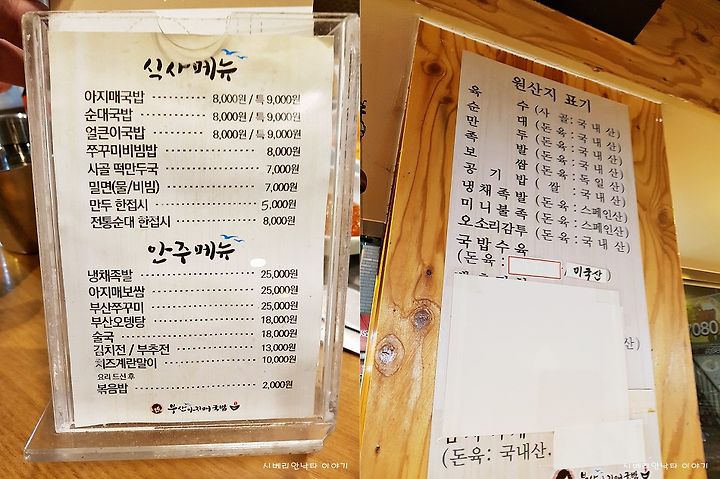 식사메뉴
아지매국밥 ············ 8,000원 / 특 9,000원
순대국밥 ············ 8,000원 / 특 9,000원
얼큰이국밥 ············ 8,000원 / 특 9,000원
쭈꾸미비빔밥 ············ 8,000원
사골 떡만두국 ············ 7,000원
밀면(물/비빔) ············ 7,000원
만두 한접시 ············ 5,000원
전통순대 한접시 ············ 8,000원
안주메뉴
냉채족발 ············ 25,000원
아지매보쌈 ············ 25,000원
부산쭈꾸미 ············ 25,000원
부산오뎅탕 ············ 18,000원
술국 ············ 18,000원
김치전 / 부추전 ············ 13,000원
치즈계란말이 ············ 10,000원
요리 드신 후
볶음밥 ············ 2,000원
부산아지매국밥
시베리안낙타 이야기
원산지 표기
육 수 (사 골 : 국 내 산)
순 대 (돈 육 : 국 내 산)
만 두 (돈 육 : 국 내 산)
족 발 (돈 육 : 국 내 산)
보 쌈 (돈 육 : 독 일 산)
공 기 밥 ( 쌀 : 국 내 산)
냉 채 족 발 (돈 육 : 스페인산)
미 니 불 족 (돈 육 : 스페인산)
오 소 리 감 투 (돈 육 : 국 내 산)
국 밥 수 육
(돈 육 : / 미국산)
산)
(돈육: 국내산.
부산아지매국밥
시베리안낙타 이야기
7080